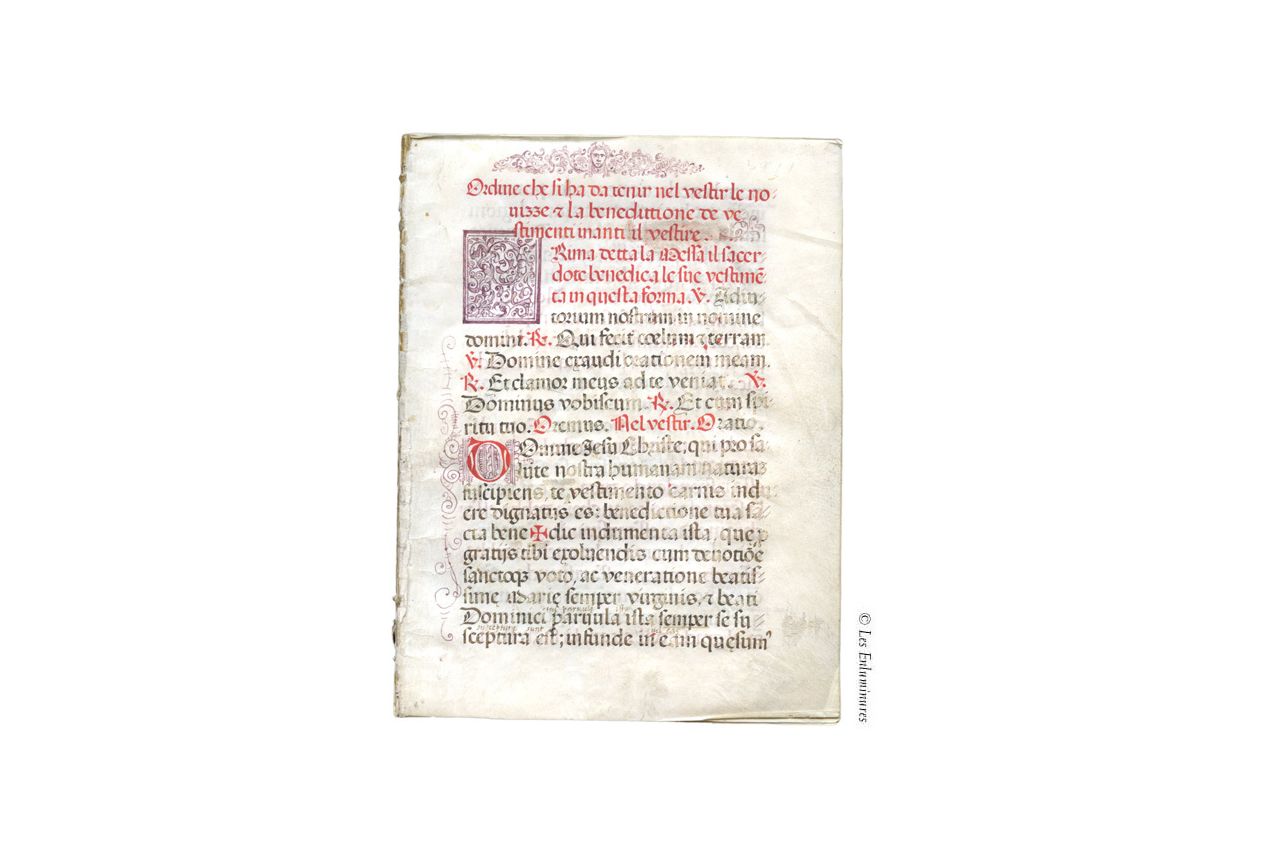 Ordine che si ha da tenir nel vestir le no-
uizze & la benedittione de ve-
stimenti inanti il vestire.
PRima detta la Messa il sacer-
dote benedica le sue vestimē-
ta in questa forma. ℣. Adiu-
torium nostrum in nomine
domini. ℟. Qui fecit cœlum & terram.
℣. Domine exaudi orationem meam.
℟. Et clamor meus ad te veniat. ℣.
Dominus vobiscum. ℟. Et cum spi-
ritu tuo. Oremus. Nel vestir. Oratio.
DOmine Jesu Christe, qui pro sa-
lute nostra humanam naturaz
suscipiens, te vestimento carnis indu-
ere dignatus es: benedictione tua sā-
cta bene✠dic indumenta ista, que ꝑ
gratijs tibi exoluendis cum deuotiōe
sanctoqꝫ voto, ac veneratione beatis-
sime Marie semper virginis, & beati
iste
Dominici paruula ista semper se su
sunt
sceptura est; infunde in eam quesum9
© Les Enluminures